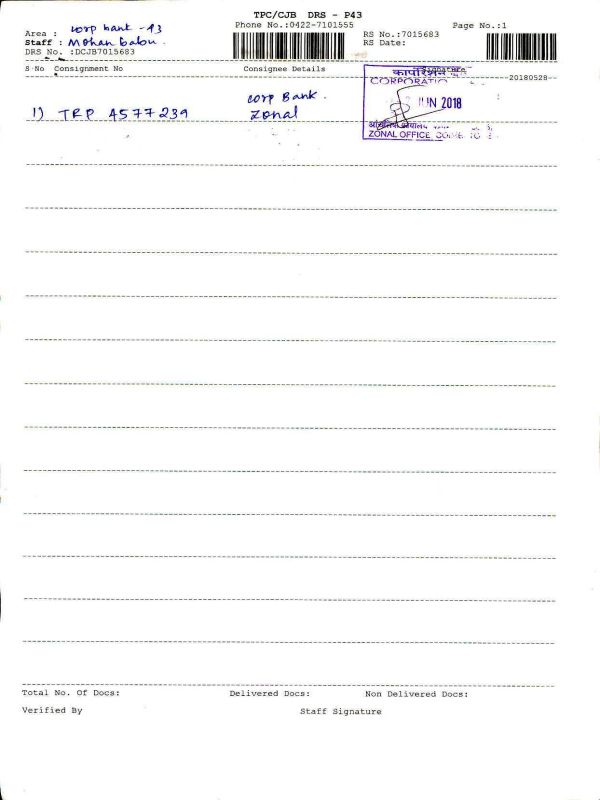 TPC/CJB DRS - P43
Area : corp bank - 43
Phone No.:0422-7101555
Page No.:1
Staff : Mohan babu.
RS No.:7015683
DRS No. :DCJB7015683
RS Date:
S No Consignment No Consignee Details Signature
20180528
कार्पोरेशन
CORPORATIO
JUN 2018
ZONAL OFFICE
1) TRP 4577239 corp Bank.
Zonal
Total No. Of Docs: Delivered Docs: Non Delivered Docs:
Verified By Staff Signature